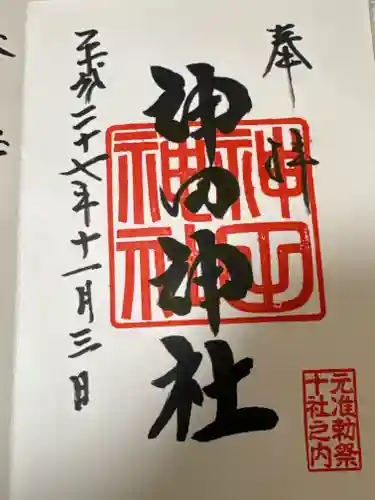 奉拝
神田神社
神田神社
元准勅祭
十社之内
平成二十七年十一月三日